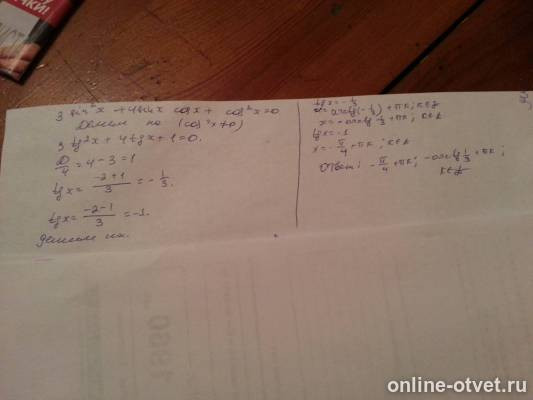 3 sin²x + 4 sin x cos x + cos²x = 0
Делим на (cos²x ≠ 0)
3 tg²x + 4 tg x + 1 = 0.
D/4 = 4 - 3 = 1
tg x = (-2+1)/3 = -1/3.
tg x = (-2-1)/3 = -1.
tg x = -1/3
x = arctg(-1/3) + πk; k∈Z
x = -arctg 1/3 + πk; k∈Z
tg x = -1
x = -π/4 + πk; k∈Z
Ответ: -π/4 + πk; -arctg 1/3 + πk;
k∈Z
1960
online-otvet.ru